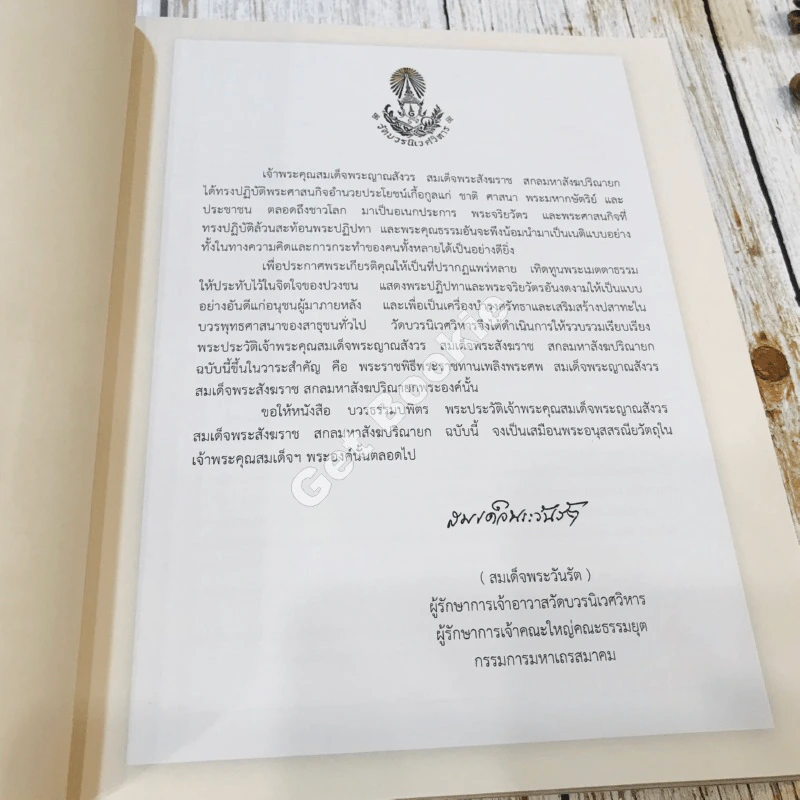 วัดบวรนิเวศวิหาร
เจ้าพระคุณสมเด็จพระญาณสังวร สมเด็จพระสังฆราช สกลมหาสังฆปริณายก
ได้ทรงปฏิบัติพระศาสนกิจอำนวยประโยชน์เกื้อกูลแก่ ชาติ ศาสนา พระมหากษัตริย์ และ
ประชาชน ตลอดถึงชาวโลก มาเป็นอเนกประการ พระจริยวัตร และพระศาสนกิจที่
ทรงปฏิบัติล้วนสะท้อนพระปฏิปทา และพระคุณธรรมอันจะพึงน้อมนำมาเป็นเนติแบบอย่าง
ทั้งในทางความคิดและการกระทำของคนทั้งหลายได้เป็นอย่างดียิ่ง
เพื่อประกาศพระเกียรติคุณให้เป็นที่ปรากฏแพร่หลาย เทิดทูนพระเมตตาธรรม
ให้ประทับไว้ในจิตใจของปวงชน แสดงพระปฏิปทาและพระจริยวัตรอันงดงามให้เป็นแบบ
อย่างอันดีแก่อนุชนผู้มาภายหลัง และเพื่อเป็นเครื่องบำรุงศรัทธาและเสริมสร้างปสาทะใน
บวรพุทธศาสนาของสาธุชนทั่วไป วัดบวรนิเวศวิหารจึงได้ดำเนินการให้รวบรวมเรียบเรียง
พระประวัติเจ้าพระคุณสมเด็จพระญาณสังวร สมเด็จพระสังฆราช สกลมหาสังฆปริณายก
ฉบับนี้ขึ้นในวาระสำคัญ คือ พระราชพิธีพระราชทานเพลิงพระศพ สมเด็จพระญาณสังวร
สมเด็จพระสังฆราช สกลมหาสังฆปริณายกพระองค์นั้น
ขอให้หนังสือ บวรธรรมบพิตร พระประวัติเจ้าพระคุณสมเด็จพระญาณสังวร
สมเด็จพระสังฆราช สกลมหาสังฆปริณายก ฉบับนี้ จงเป็นเสมือนพระอนุสสรณียวัตถุใน
เจ้าพระคุณสมเด็จฯ พระองค์นั้นตลอดไป
สมเด็จพระวันรัต
( สมเด็จพระวันรัต )
ผู้รักษาการเจ้าอาวาสวัดบวรนิเวศวิหาร
ผู้รักษาการเจ้าคณะใหญ่คณะธรรมยุต
กรรมการมหาเถรสมาคม
Get Bookie